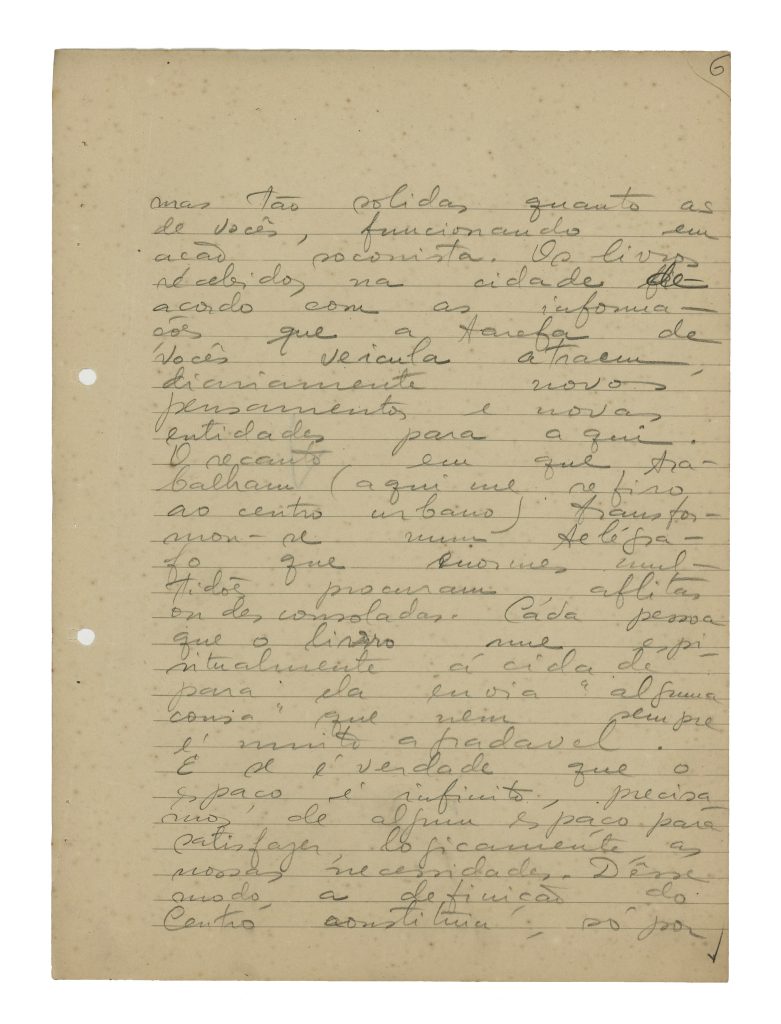 6
mas tão solidas quanto as
de vocês, funcionando em
acão soconista. Os livros
recebidos na cidade de
acordo com as informa-
cões que a tarefa de
vocês veicula atraem,
diariamente novos
pensamentos e novas
entidades para aqui.
O recanto em que tra-
balham (aqui me refiro
ao centro urbano) transfor-
mou-se num telégra-
fo que enormes mul-
tidoẽ procuram aflitas
ou desconsoladas. Cáda pessoa
que o livro une espi-
ritualmente á cidade
para ela envia "alguma
cousa" que nem sempre
é muito agradavel.
E se é verdade que o
espaco é infinito, precisa
mos de algum espaco para
satisfazer logicamente as
nossas necessidades. Dêsse
modo, a definicão do
Centro constituiu, só por